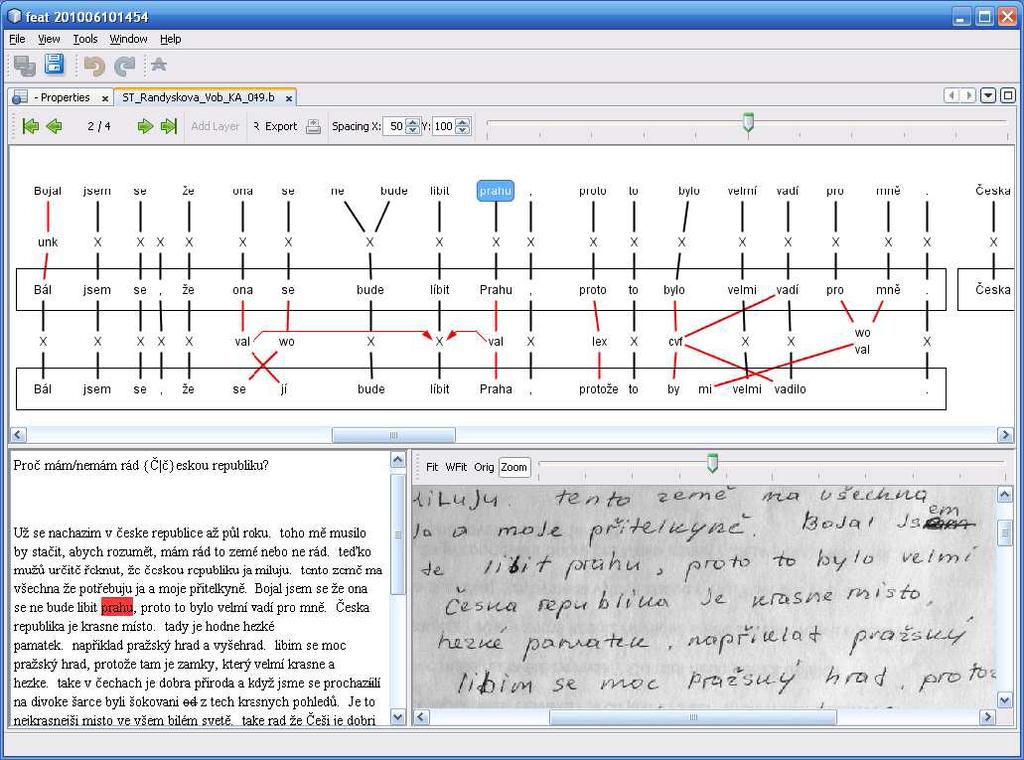 feat 201006101454
File View Tools Window Help
- Properties x ST_Randyskova_Vob_KA_049.b x
2 / 4 Add Layer Export Spacing X: 50 Y: 100
Bojal jsem se že ona se ne bude líbit prahu , proto to bylo velmí vadí pro mně . Česka
unk X X X X X X X X X X X X X X X X X X X
Bál jsem se , že ona se bude líbit Prahu , proto to bylo velmi vadí pro mně . Česka
X X X X X val wo X X val X lex X cvf X X wo val X
Bál jsem se , že se jí bude líbit Praha , protože to by mi velmi vadilo .
Proč mám/nemám rád {Č|č}eskou republiku?
Už se nachazim v česke republice až půl roku. toho mě musilo
by stačit, abych rozumět, mám rád to země nebo ne rád. teďko
mužů určitč řcknut, žc čcskou rcpubliku ja miluju. tcnto zcmč ma
všechna že potřebuju ja a moje přitelkyně. Bojal jsem se že ona
se ne bude libit prahu, proto to bylo velmí vadí pro mně. Česka
republika je krasne místo. tady je hodne hezké
pamatek. napřiklad pražský hrad a vyšehrad. libim se moc
pražský hrad, protože tam je zamky, který velmí krasne a
hezke. take v čechach je dobra přiroda a když jsme se prochazíilí
na divoke šarce byli šokovani od z tech krasnych pohledů. Je to
nejkrasnejši misto ve všem bilém svetě. take rad že Češi je dobri
Fit WFit Orig Zoom
miluju. tento země ma všechna
ja a moje přitelkyně. Bojal jsem
se libit prahu, proto to bylo velmí
Česka republika je krasne místo.
hezké pamatek. napřiklat pražský
libim se moc pražský hrad, protož